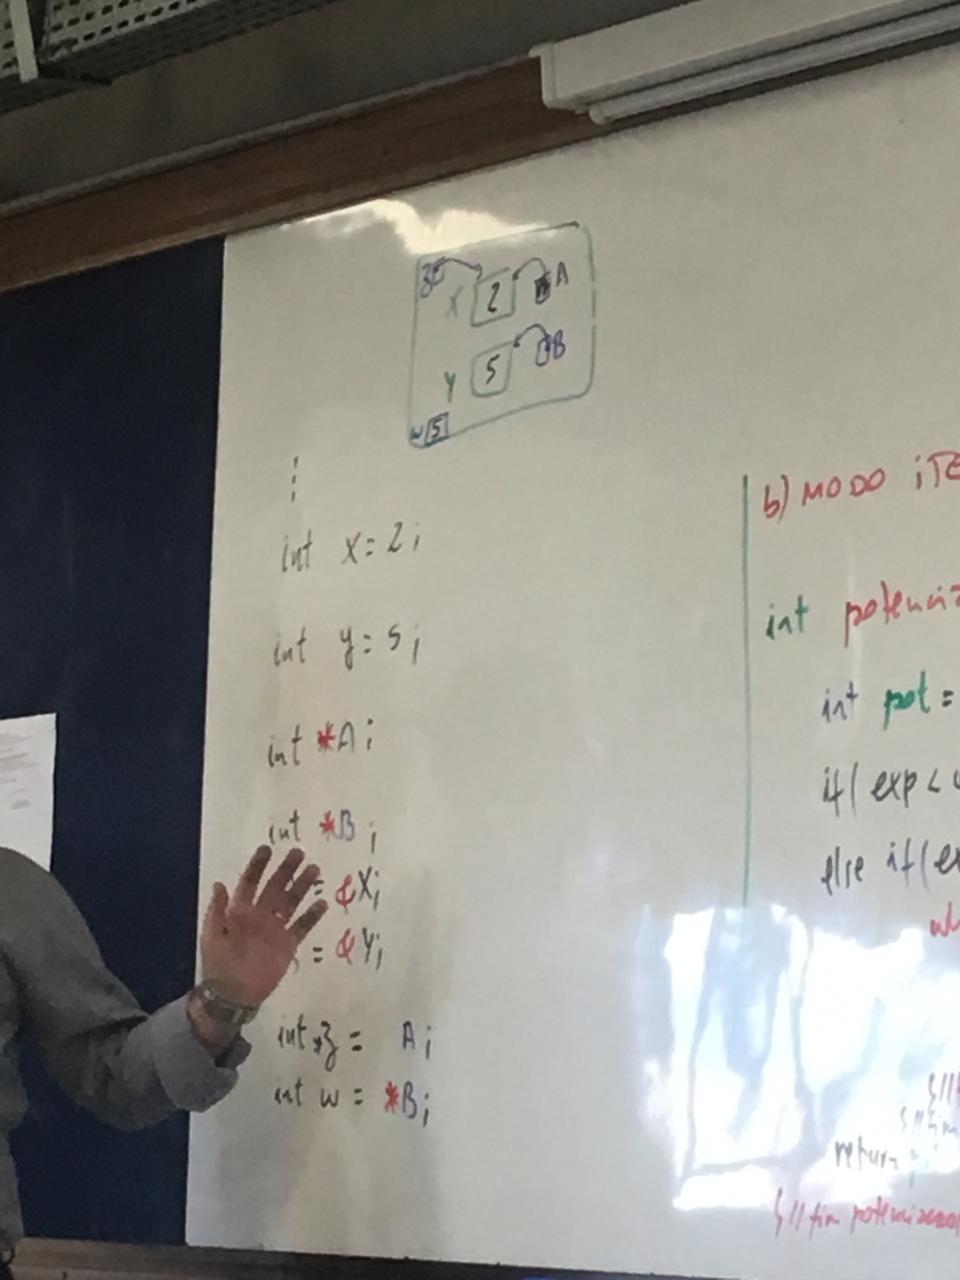 z
X 2 A
Y 5 B
w 5
int x = 2;
int y = 5;
int *A;
int *B;
= &X;
= &Y;
int *z = A;
int w = *B;
b) MODO ITE
int potencia
int pot =
if( exp <
else if(ex
wh
return
}//fim potenciacao